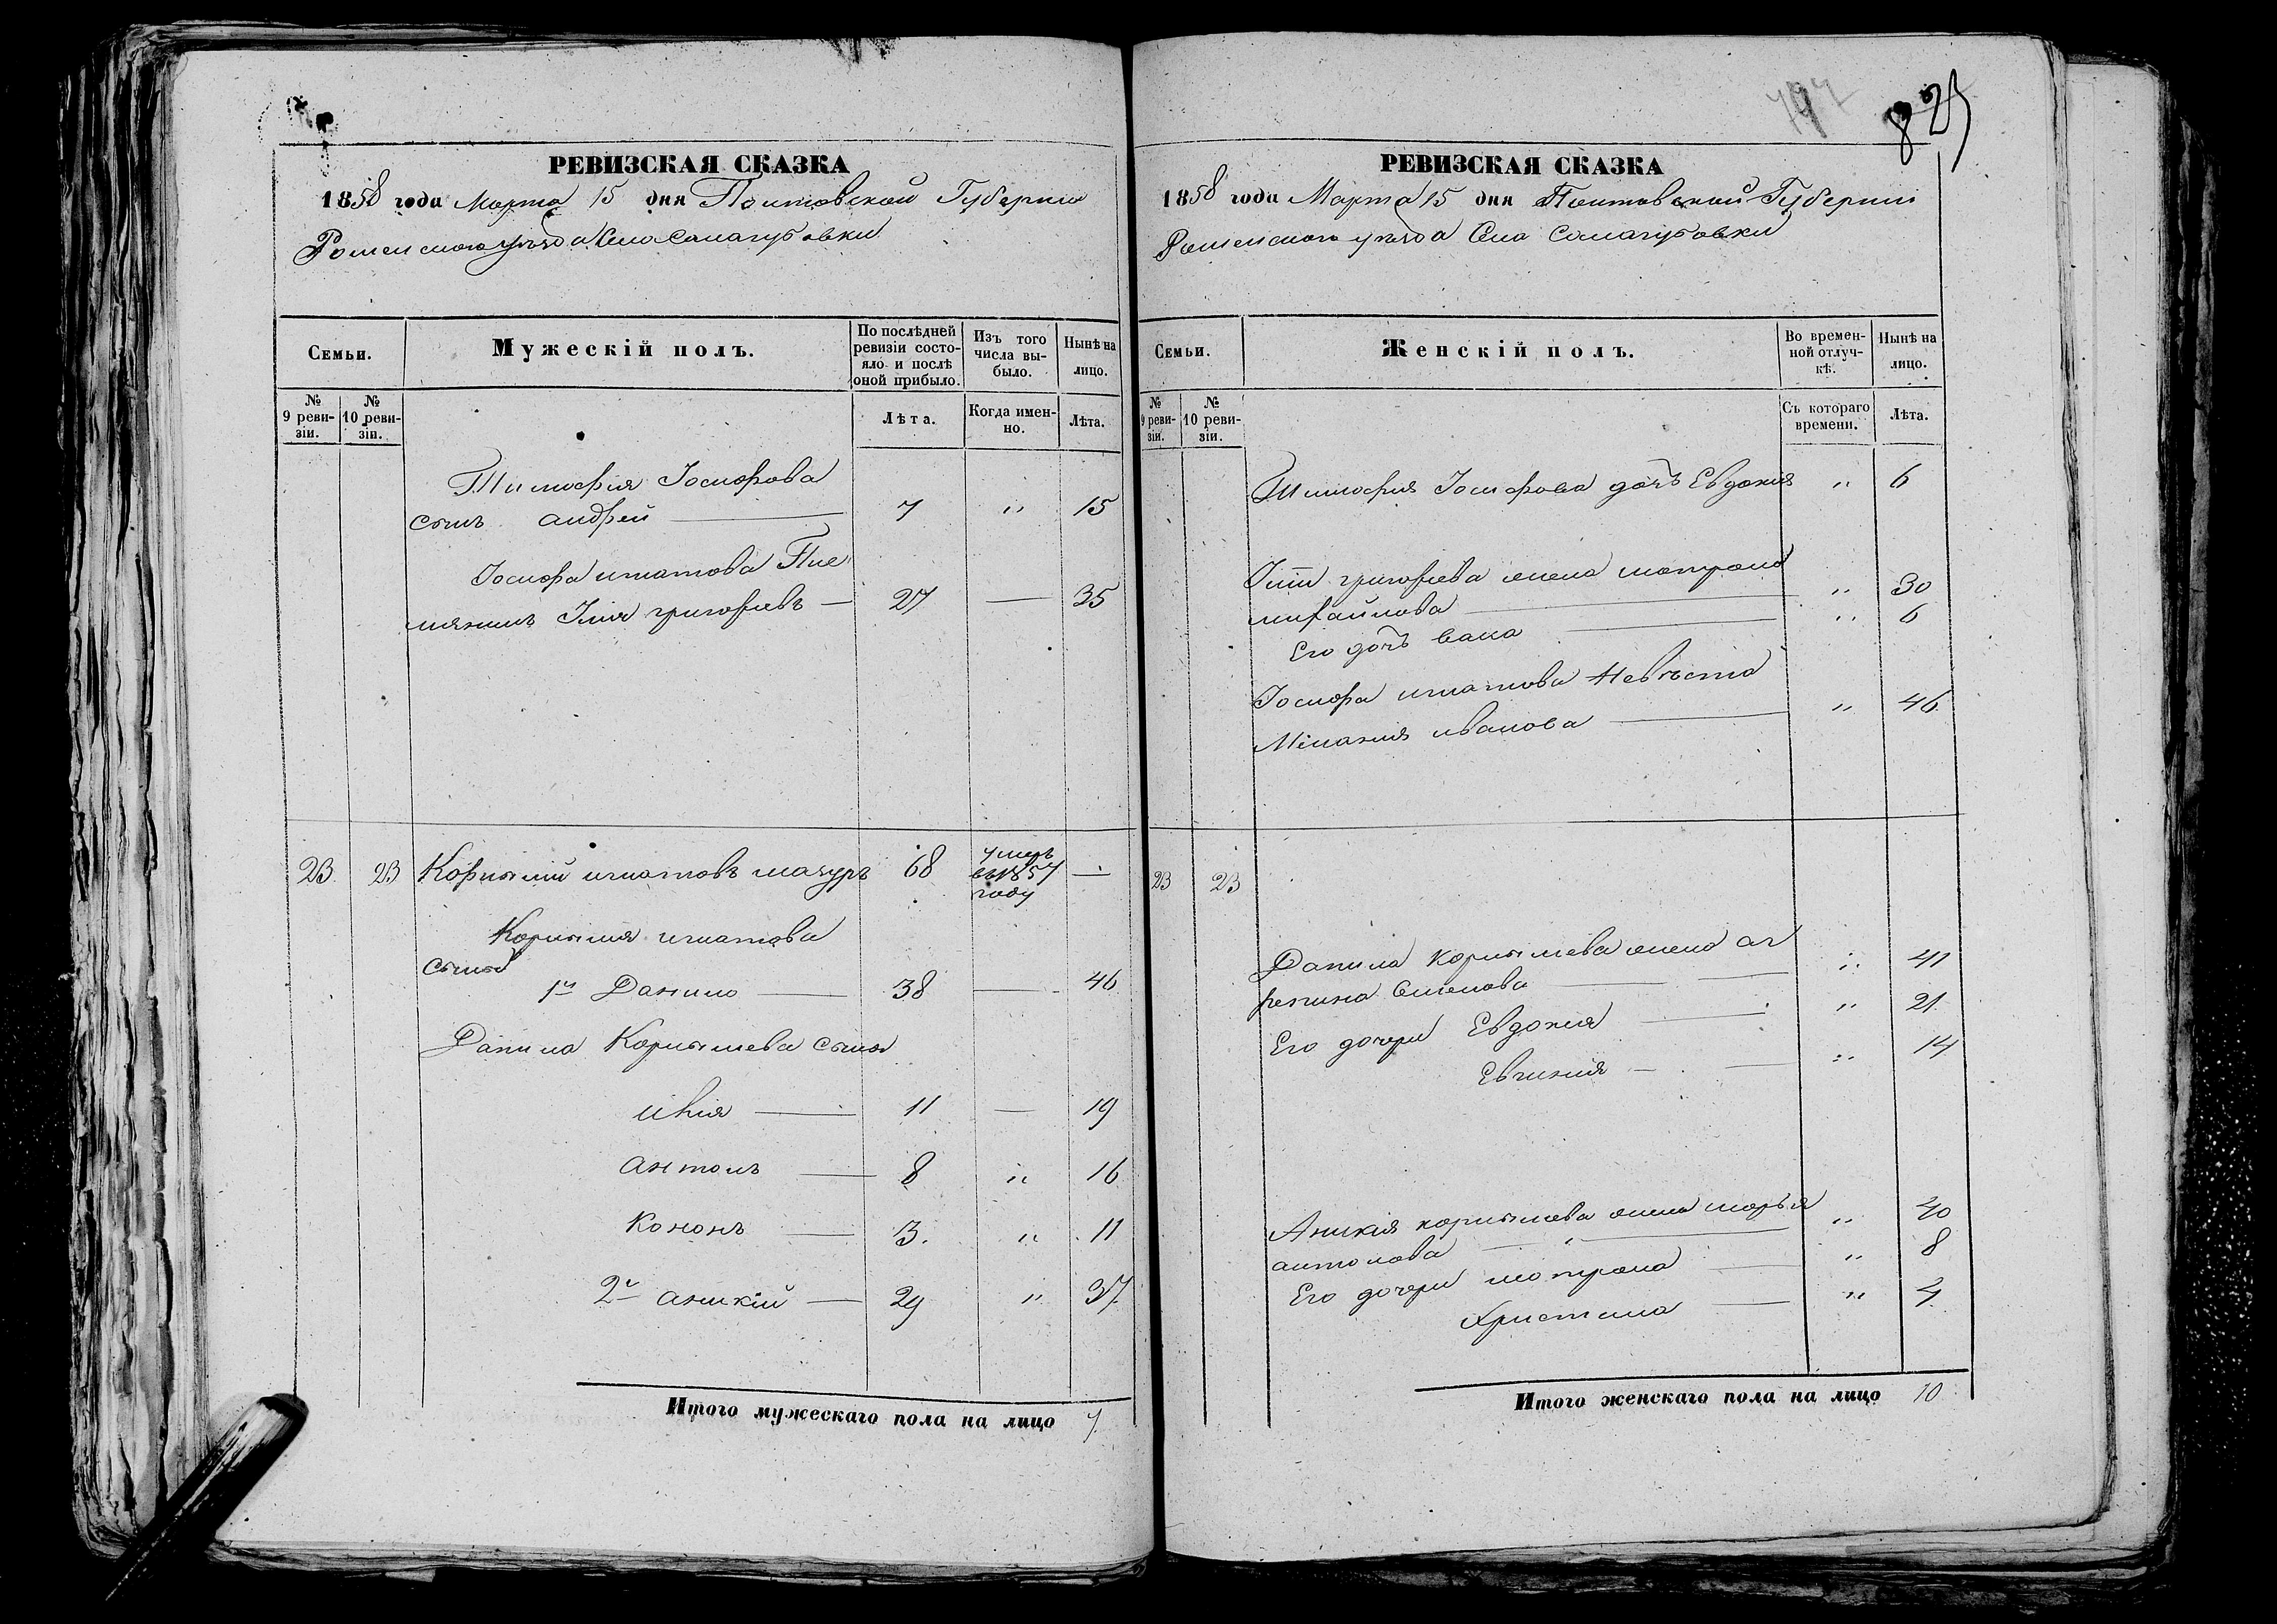 825
РЕВИЗСКАЯ СКАЗКА
1858 года Марта 15 дня Полтавской Губернии
Роменского уезда Села Салагубовки
Семьи.
Мужескій полъ.
По послѣдней ревизіи состояло и послѣ оной прибыло.
Изъ того числа выбыло.
Нынѣ на лицо.
№ 9 ревизіи.
№ 10 ревизіи.
Лѣта.
Когда именно.
Лѣта.
Тимофия Іосифова
сынъ андрей 7 " 15
Іосифа игнатова Пле
мяникъ Илія григорьевъ — 27 — 35
23 23 Корнилий игнатовъ 68 умеръ в 1857 году —
Корнилия игнатова
сыны
1й Данило — 38 — 46
Данила Корнилиева сыны
11 — 19
антонъ — 8 " 16
Кононъ — 3. " 11
2й аникій — 29 " 37
Итого мужескаго пола на лицо 7
РЕВИЗСКАЯ СКАЗКА
1858 года Марта 15 дня Полтавской Губернии
Роменского уезда Села Салагубовки
Семьи.
Женскій полъ.
Во временной отлучкѣ.
Нынѣ на лицо.
№ 9 ревизіи.
№ 10 ревизіи.
Съ котораго времени.
Лѣта.
Тимофия Іосифова дочь Евдокия " 6
григорьева жена матрона
михайлова — " 30
Его дочь — " 6
Іосифа игнатова Невѣста
Мелания иванова — " 46
23 23
Данила корнилиева жена аг
репина семенова — " 41
Его дочери Евдокия — " 21
Евгения — " 14
Аникія корнилиева жена марья
антонова — " 40
Его дочери матрона — " 8
Христина — " 4
Итого женскаго пола на лицо 10